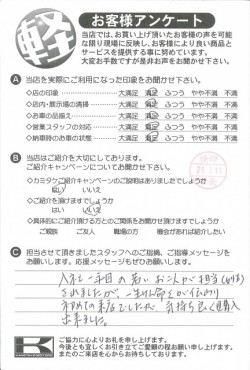 軽
お客様アンケート
当店では、お買い上げ頂いたお客様の声を可能
な限り現場に反映し、お客様により良い商品と
サービスを提供する事に努めています。
大変お手数ですが是非お声をお聞かせ下さい。
A 当店を実際にご利用になった印象をお聞かせ下さい。
◇店の印象 大満足 満足 ふつう やや不満 不満
◇店内・展示場の清掃 大満足 満足 ふつう やや不満 不満
◇お車の品揃え 大満足 満足 ふつう やや不満 不満
◇営業スタッフの対応 大満足 満足 ふつう やや不満 不満
◇納車時のお車の状態 大満足 満足 ふつう やや不満 不満
B 当店はご紹介を大切にしております。
ご紹介キャンペーンについてお聞かせ下さい。
◇カミタケご紹介キャンペーンのご説明はありましたでしょうか
はい いいえ
◇ご紹介は頂けますでしょうか
はい いいえ
◇具体的にご紹介頂ける方とのご関係をお聞かせ下さい
ご親族 ご友人 職場の方 機会があれば紹介したい
C 担当させて頂きましたスタッフへのご指摘、ご指導メッセージを
お願いします。応援メッセージもぜひお願いします。
入社一年目の若いお二人が担当
されましたが、一生けん命さが伝わり
初めての来店でしたが、気持ち良く購入
出来ました。
ご協力に心よりお礼を申し上げます。
今後とも宜しくお引き立てご愛顧の程お願い申し上げます。
またのご来店を心からお待ちしております。